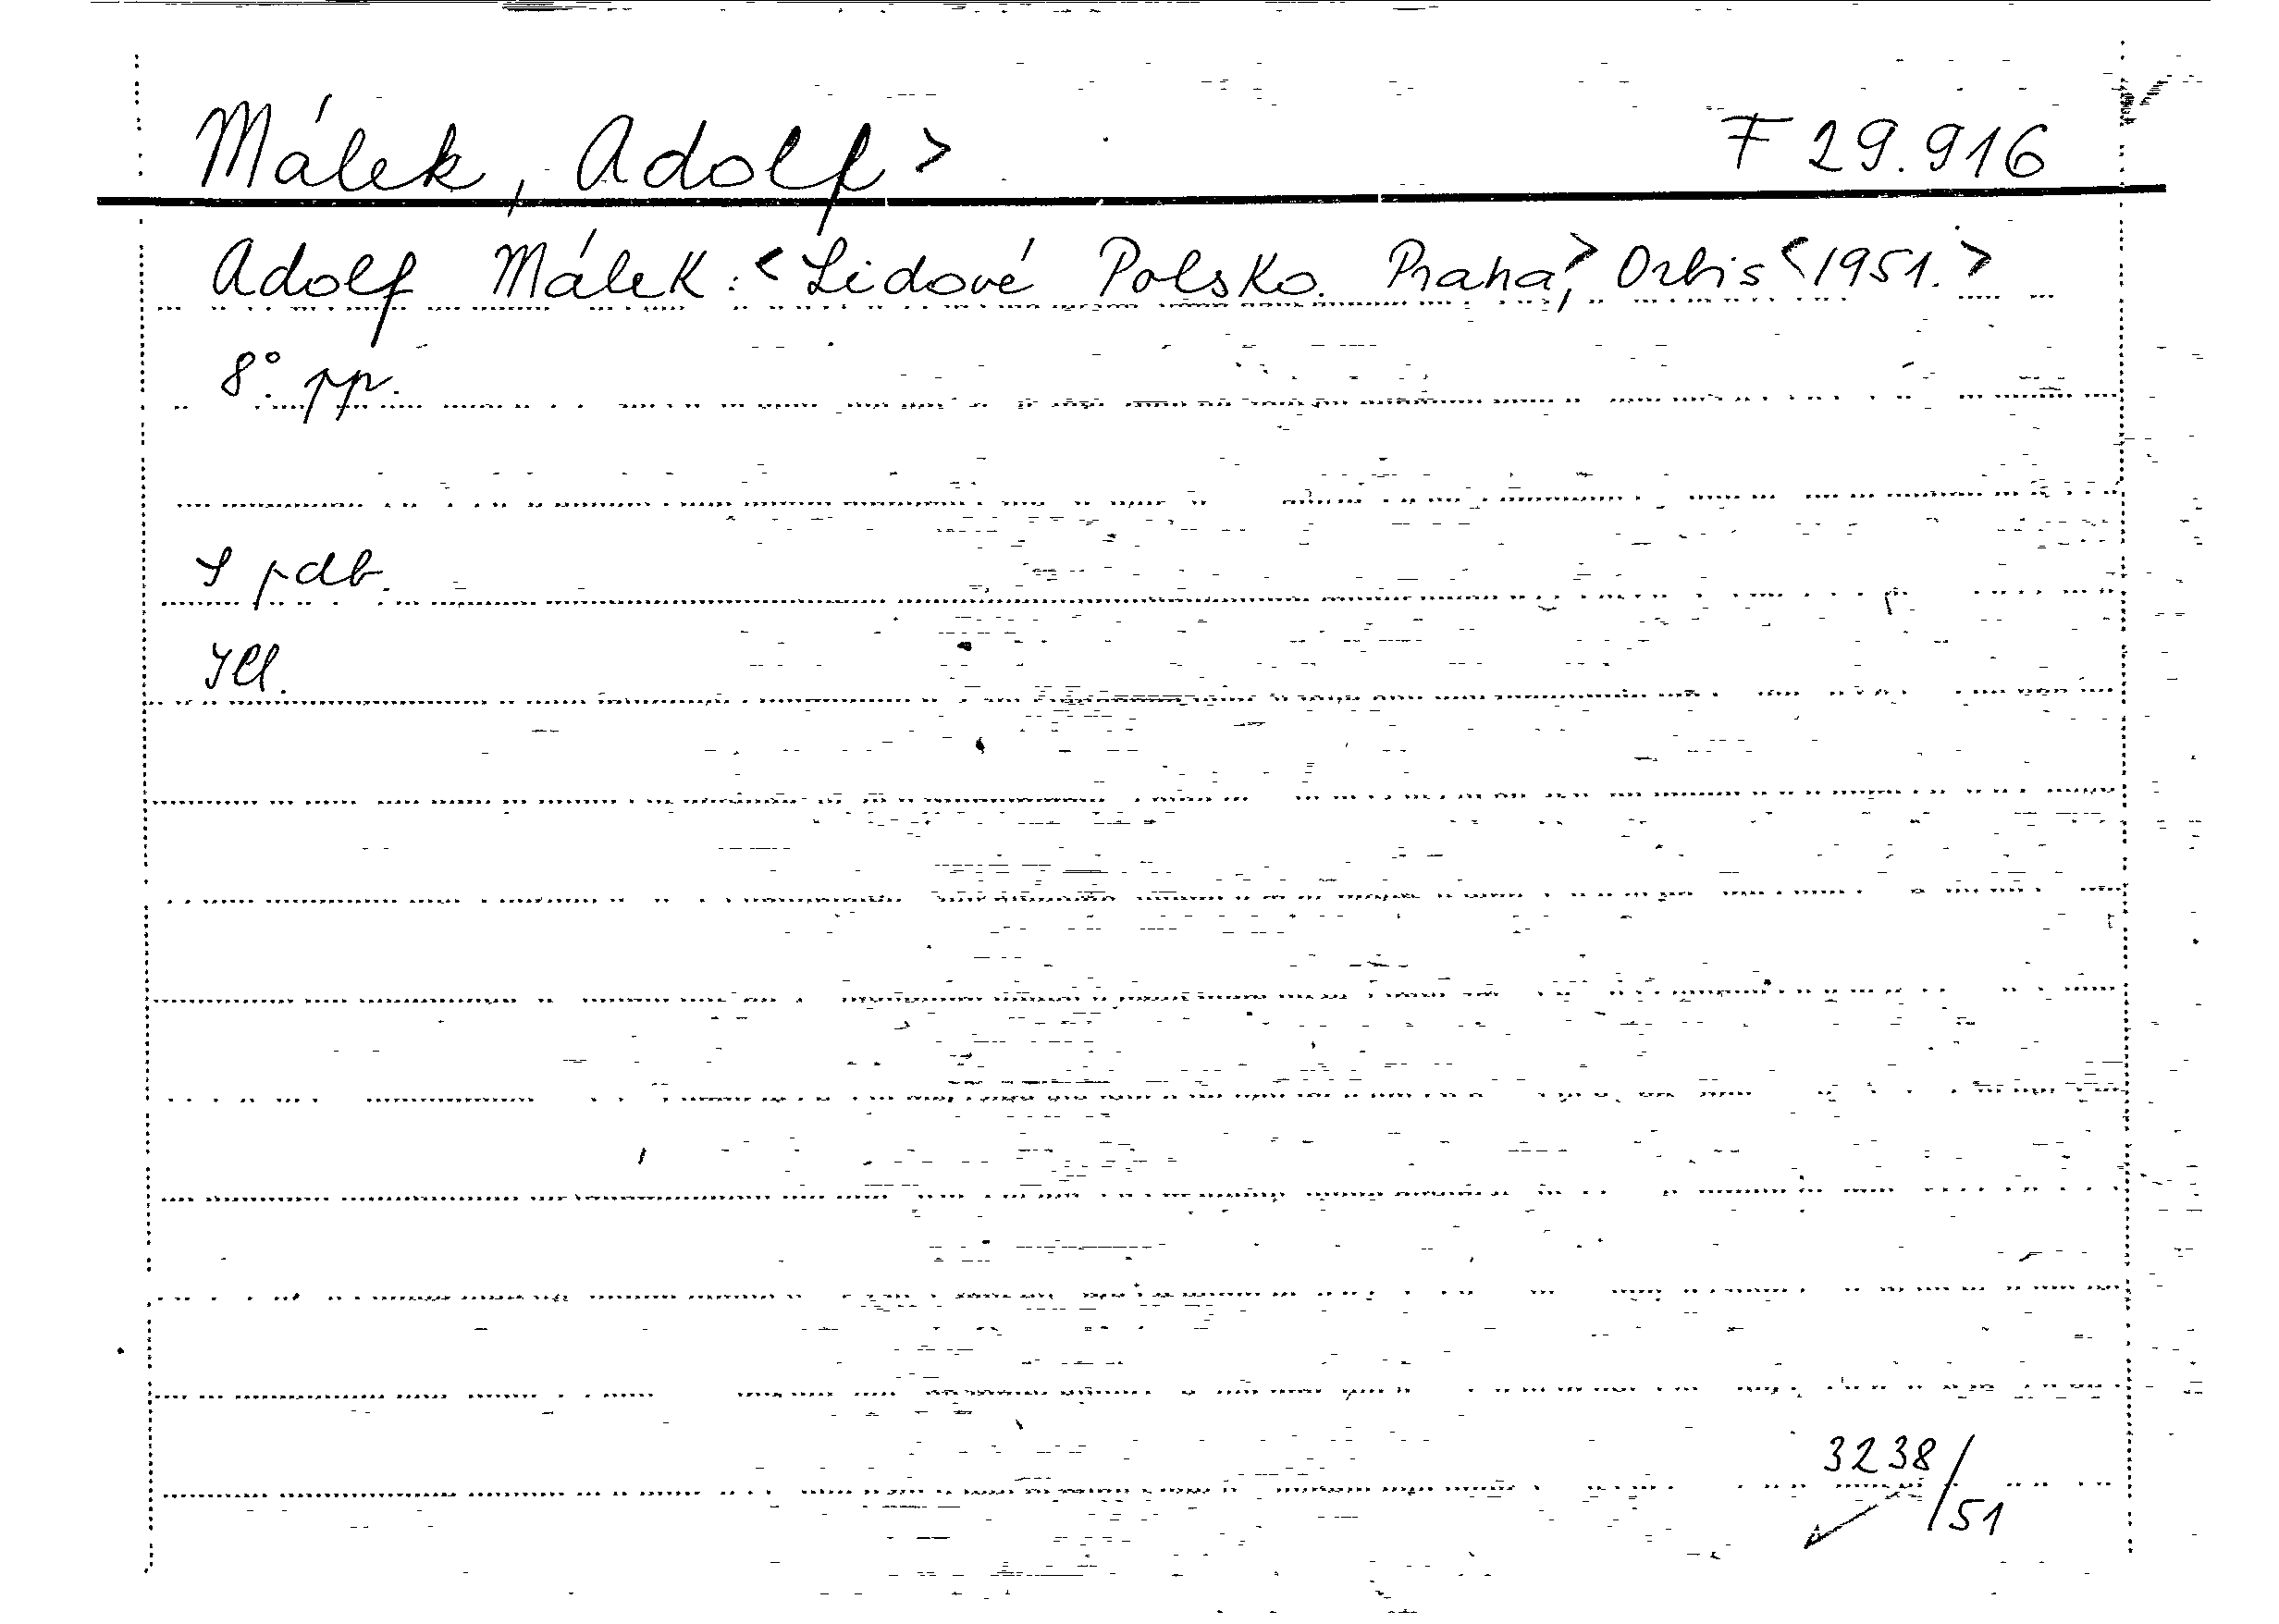 Málek, Adolf > F 29.916
Adolf Málek: <Lidové Polsko. Praha>, Orbis <1951.>
8°. pp.
pdb.
Ill.
3238/51